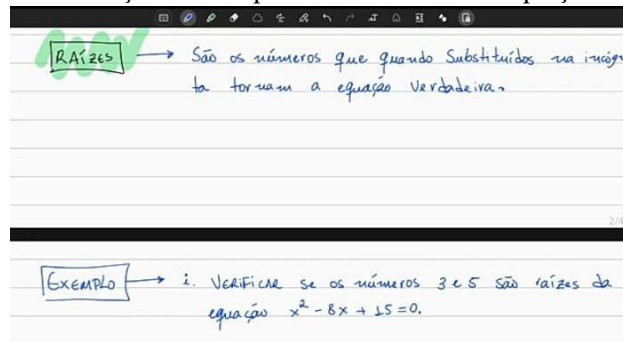 RAÍZES → São os números que quando Substituídos na incógni
ta tornam a equação Verdadeira.
2/4
EXEMPLO → i. VERIFICAR se os números 3 e 5 são raízes da
equação x² - 8x + 15 = 0.